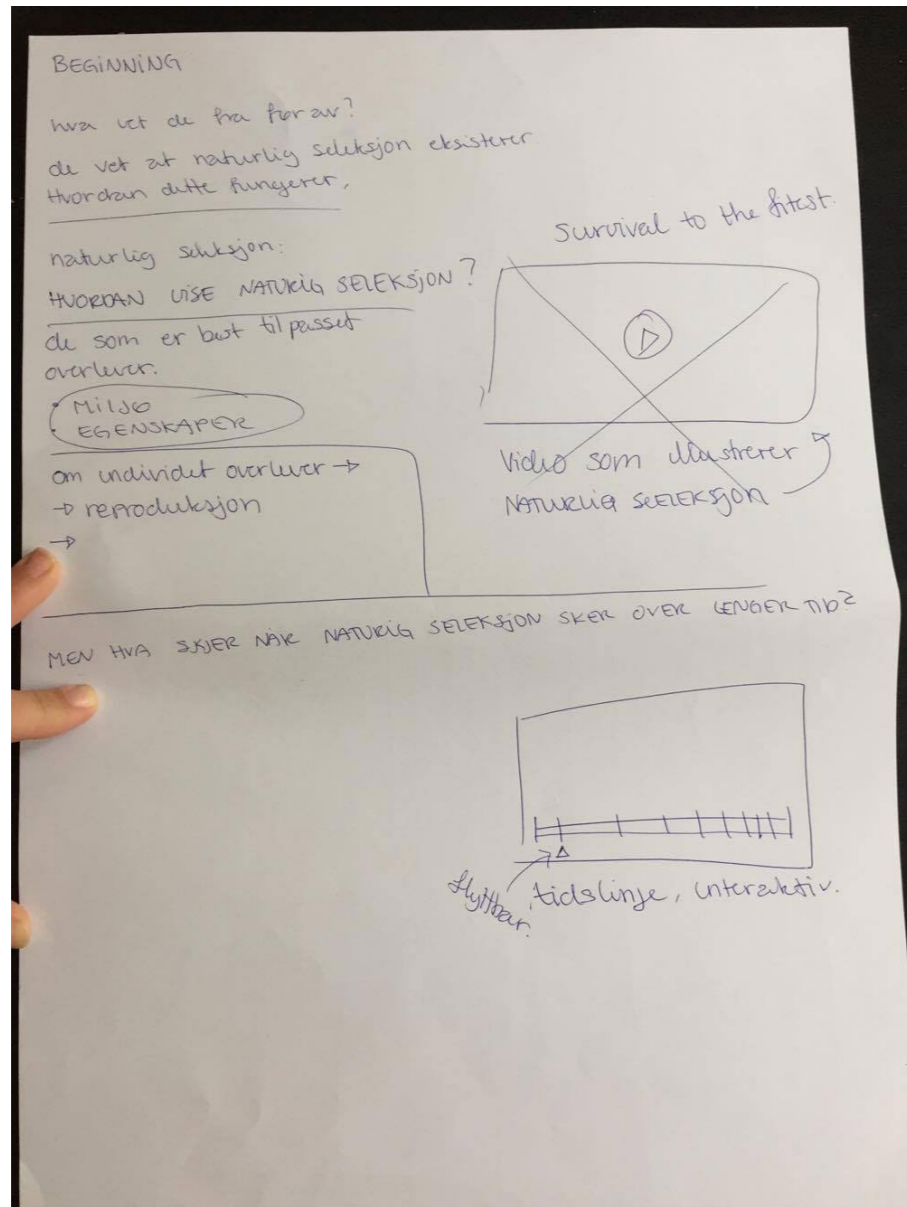 BEGINNING
hva vet de fra før av?
de vet at naturlig seleksjon eksisterer
Hvordan dette fungerer,
naturlig seleksjon:
HVORDAN VISE NATURIG SELEKSJON?
de som er best tilpasset
overlever.
• MILJØ
• EGENSKAPER
om individet overlever →
→ reproduksjon
→
Survival to the fitest.
Video som illustrerer
NATURLIG SEELEKSJON
MEN HVA SKJER NÅR NATURIG SELEKSJON SKER OVER LENGER TID?
flyttbar.
tidslinje, interaktiv.